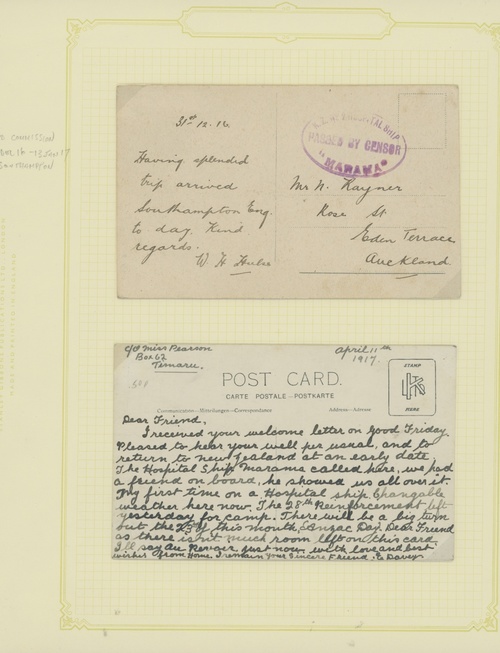 31st 12.16
N.Z. HOSPITAL SHIP
PASSED BY CENSOR
"MARAMA"
Having splendid
trip arrived
Southampton Eng.
to day. Kind
regards.
W H Hulse
Mr N. Rayner
Rose St
Eden Terrace
Auckland.
c/o Miss Pearson
Box 62
Temaru.
April 11th
1917.
POST CARD.
CARTE POSTALE - POSTKARTE
Communication - Mitteilungen - Correspondence
Address - Adresse
STAMP
HERE
Dear Friend,
I received your welcome letter on Good Friday
Pleased to hear your well per usual, and to
return to new Zealand at an early date,
The Hospital Ship Marama called here, we had
a friend on board, he showed us all over it.
My first time on a Hospital ship Changable
weather here now. The 28th Reinforcement left
yesterday for camp. There will be a big turn
out the 25th this month, Anzac Day. Dear Friend
as there isn't much room left on this card.
I'll say Au Revoir just now. with love and best
wishes from Home I remain your Sincere Friend. E Davey